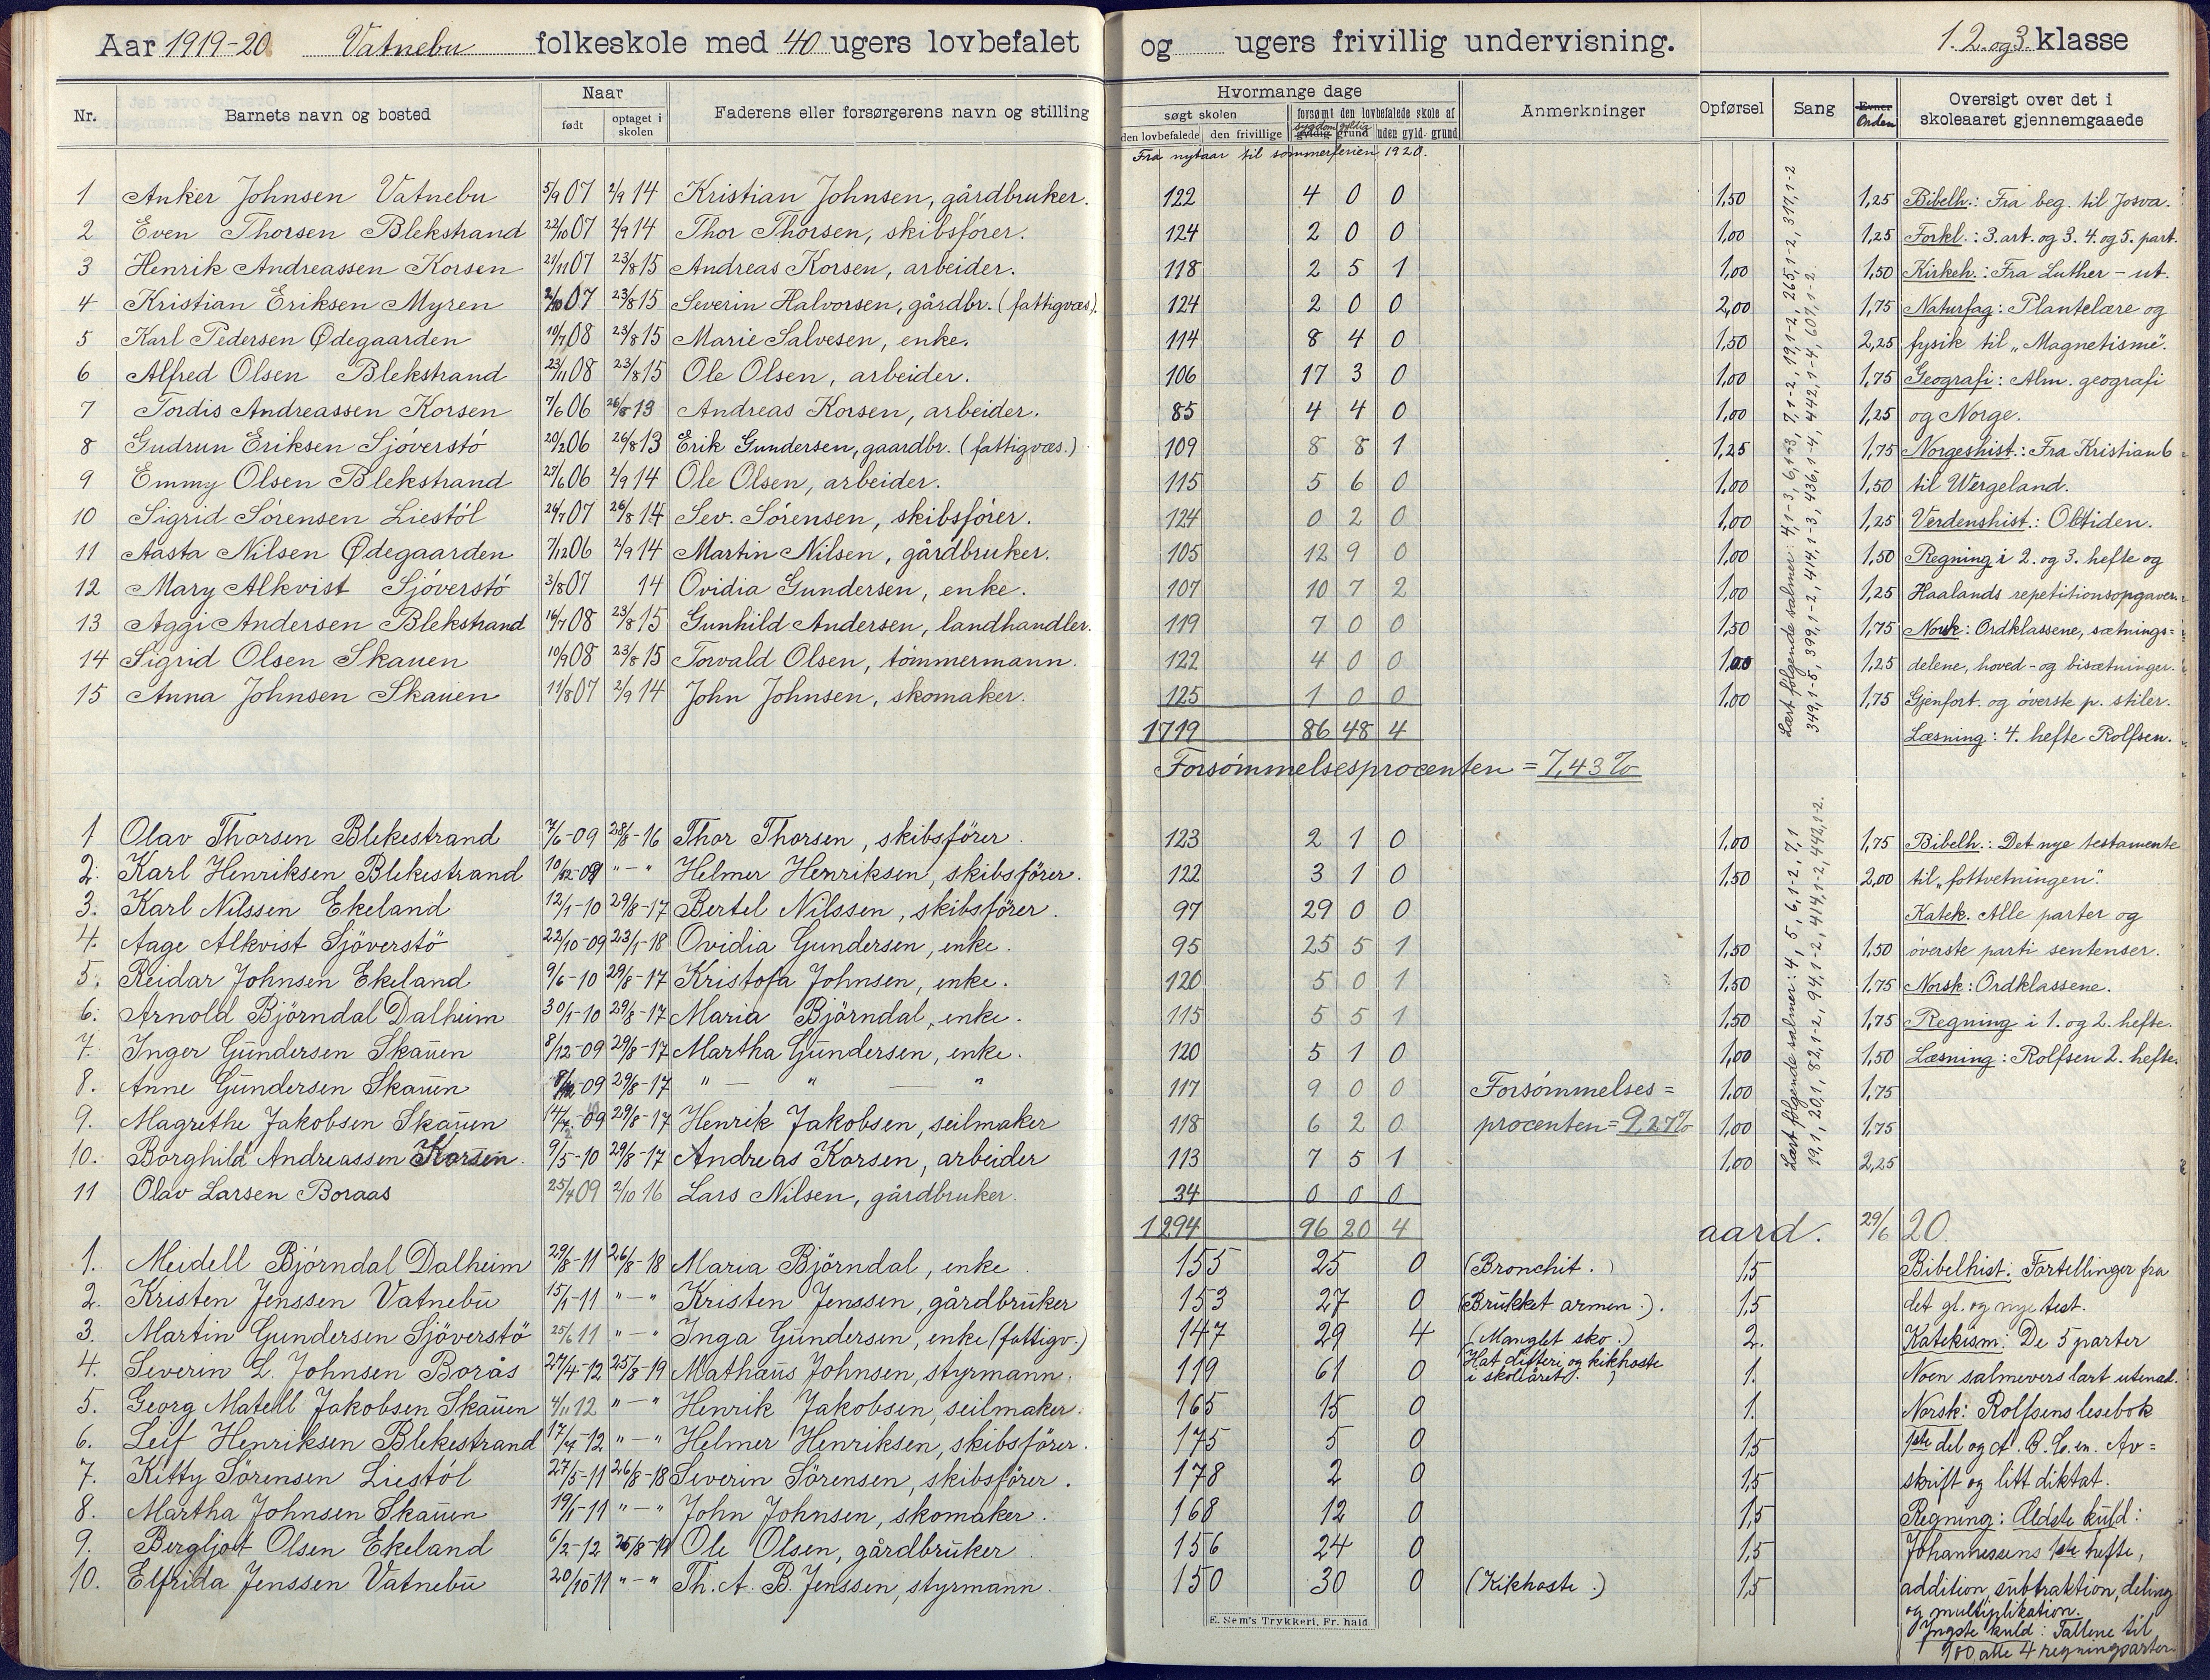 Aar 1919-20 Vatnebu folkeskole med 40 ugers lovbefalet og ugers frivillig undervisning. 1. 2. og 3. klasse
Nr. Barnets navn og bosted Naar født optaget i skolen Faderens eller forsørgerens navn og stilling Hvormange dage søgt skolen den lovbefalede den frivillige forsømt den lovbefalede skole af sygdom gyldig grund uden gyld. grund Anmerkninger Opførsel Sang Evner Orden Oversigt over det i skoleaaret gjennemgaaede
Fra nytaar til sommerferien 1920.
1 Anker Johnsen Vatnebu 5/9 07 2/9 14 Kristian Johnsen, gårdbruker. 122 4 0 0 1,50 1,25 Bibelh.: Fra beg. til Josva.
2 Even Thorsen Blekstrand 22/10 07 2/9 14 Thor Thorsen, skibsfører. 124 2 0 0 1,00 1,25 Forkl.: 3. art. og 3. 4. og 5. part.
3 Henrik Andreassen Korsen 21/11 07 23/8 15 Andreas Korsen, arbeider. 118 2 5 1 1,00 1,50 Kirkeh.: Fra Luther - ut.
4 Kristian Eriksen Myren 2/10 07 23/8 15 Severin Halvorsen, gårdbr. (fattigvæs). 124 2 0 0 2,00 1,75 Naturfag: Plantelære og
5 Karl Pedersen Ødegaarden 10/7 08 23/8 15 Marie Salvesen, enke. 114 8 4 0 1,50 2,25 fysik til „Magnetisme".
6 Alfred Olsen Blekstrand 23/11 08 23/8 15 Ole Olsen, arbeider. 106 17 3 0 1,00 1,75 Geografi: Alm. geografi
7 Tordis Andreassen Korsen 7/6 06 26/8 13 Andreas Korsen, arbeider. 85 4 4 0 1,00 1,25 og Norge.
8 Gudrun Eriksen Sjøverstø 20/2 06 26/8 13 Erik Gundersen, gaardbr. (fattigvæs.) 109 8 8 1 1,25 1,75 Norgeshist.: Fra Kristian 6
9 Emmy Olsen Blekstrand 27/6 06 2/9 14 Ole Olsen, arbeider. 115 5 6 0 1,00 1,50 til Wergeland.
10 Sigrid Sørensen Liestøl 26/7 07 26/8 14 Sev. Sørensen, skibsfører. 124 0 2 0 1,00 1,25 Verdenshist.: Oldtiden.
11 Aasta Nilsen Ødegaarden 7/12 06 2/9 14 Martin Nilsen, gårdbruker. 105 12 9 0 1,00 1,50 Regning i 2. og 3. hefte og
12 Mary Alkvist Sjøverstø 3/8 07 14 Ovidia Gundersen, enke. 107 10 7 2 1,00 1,25 Haalands repetitionsopgaver.
13 Aggi Andersen Blekstrand 16/7 08 23/8 15 Gunhild Andersen, landhandler. 119 7 0 0 1,50 1,75 Norsk: Ordklassene, sætnings=
14 Sigrid Olsen Skauen 10/9 08 23/8 15 Torvald Olsen, tømmermann. 122 4 0 0 1,00 1,25 delene, hoved- og bisætninger.
15 Anna Johnsen Skauen 11/8 07 2/9 14 John Johnsen, skomaker. 125 1 0 0 1,00 1,75 Gjenfort. og øverste p. stiler.
1719 86 48 4 Læsning: 4. hefte Rolfsen.
Forsømmelsesprocenten = 7,43 %
Lært følgende salmer: 4,1-3, 6,1-3, 7,1-2, 19,1-2, 265,1-2, 317,1-2
349,1-5, 399,1-2, 414,1-3, 436,1-4, 442,1-4, 607,1-2.
1 Olav Thorsen Blekestrand 7/6-09 28/8-16 Thor Thorsen, skibsfører. 123 2 1 0 1,00 1,75 Bibelh.: Det nye testamente
2. Karl Henriksen Blekestrand 10/12-09 "-" Helmer Henriksen, skibsfører. 122 3 1 0 1,50 2,00 til „fottvetningen".
3. Karl Nilssen Ekeland 12/1-10 29/8-17 Bertel Nilssen, skibsfører. 97 29 0 0 Katek. Alle parter og
4. Aage Alkvist Sjöverstö 22/10-09 23/1-18 Ovidia Gundersen, enke. 95 25 5 1 1,50 1,50 øverste parti sentenser.
5. Reidar Johnsen Ekeland 9/6-10 29/8-17 Kristofa Johnsen, enke. 120 5 0 1 1,50 1,75 Norsk: Ordklassene.
6. Arnold Björndal Dalheim 30/1-10 29/8-17 Maria Björndal, enke. 115 5 5 1 1,50 1,75 Regning i 1. og 2. hefte.
7. Inger Gundersen Skauen 8/12-09 29/8-17 Martha Gundersen, enke. 120 5 1 0 1,00 1,50 Læsning: Rolfsen 2. hefte.
8. Anne Gundersen Skauen 8/12 09 29/8-17 " — " — " 117 9 0 0 Forsømmelses= 1,00 1,75
9. Magrethe Jakobsen Skauen 14/7-09 29/8-17 Henrik Jakobsen, seilmaker 118 6 2 0 procenten = 9,27% 1,00 1,75
10. Borghild Andreassen Korsen. 9/5-10 29/8-17 Andreas Korsen, arbeider 113 7 5 1 1,00 2,25
11 Olav Larsen Boraas 25/4 09 2/10 16 Lars Nilsen, gårdbruker. 34 0 0 0
1294 96 20 4 aard. 29/6 20.
Lært følgende salmer: 4, 5, 6,1-2, 7,1
19,1, 20,1, 82,1-2, 94,1-2, 414,1-2, 442,1-2.
1. Meidell Björndal Dalheim 29/8-11 26/8-18 Maria Björndal, enke. 155 25 0 (Bronchit.) 1,5 Bibelhist: Fortellinger fra
2. Kristen Jenssen Vatnebu 15/1-11 "-" Kristen Jenssen, gårdbruker 153 27 0 (Brukket armen.). 1,5 det gl. og nye test.
3. Martin Gundersen Sjöverstö 25/6 11 "-" Inga Gundersen, enke (fattigv.) 147 29 4 (Manglet sko.) 2. Katekism: De 5 parter
4. Severin L. Johnsen Borås 27/4-12 25/8-19 Mathæus Johnsen, styrmann. 119 61 0 Hat difteri og kikhoste i skoleåret. 1. Noen salmevers lært utenad.
5. Georg Matell Jakobsen Skauen 4/11 12 "-" Henrik Jakobsen, seilmaker. 165 15 0 1. Norsk: Rolfsens lesebok
6. Leif Henriksen Blekestrand 17/4-12 "-" Helmer Henriksen, skibsfører. 175 5 0 1,5 1ste del og A. B. C. en. Av=
7. Kitty Sörensen Liestöl 27/5-11 26/8-18 Severin Sörensen, skibsfører. 178 2 0 1,5 skrift og litt diktat.
8. Martha Johnsen Skauen 19/1-11 "-" John Johnsen, skomaker. 168 12 0 1,5 Regning: Ældste kuld:
9. Bergljot Olsen Ekeland 6/2-12 25/8-19 Ole Olsen, gårdbruker. 156 24 0 1,5 Johannessens 1ste hefte,
10. Elfrida Jenssen Vatnebu 20/10 11 "-" Th. A. B. Jenssen, styrmann. 150 30 0 (Kikhoste.) 1,5 addition, subtraktion, deling
og multiplikation.
Yngste kuld: Tallene til
100 alle 4 regningsarter.
E. Sem's Trykkeri, Fr.hald